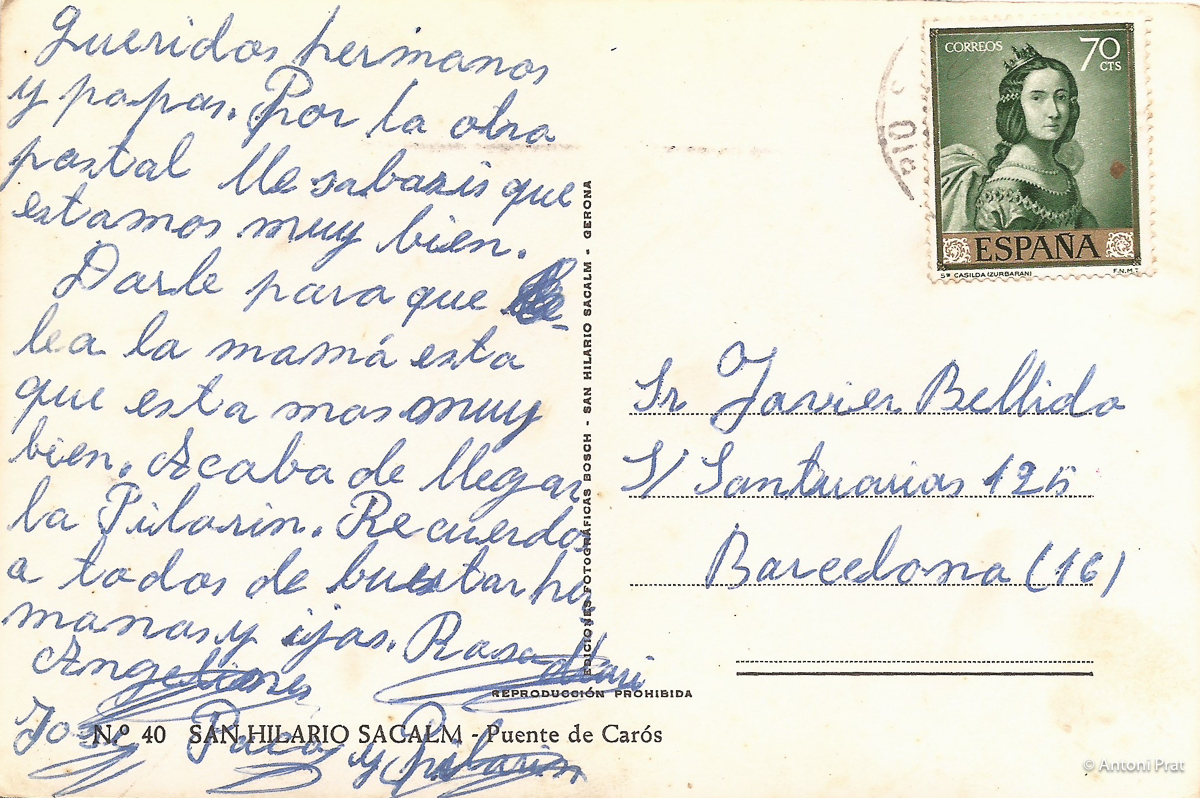 Queridos hermanos
y papas. Por la otra
postal lle sabazis que
estamos muy bien.
Darle para que
lea la mamá esta
que esta mos muy
bien. Acaba de llegar
la Pilarin. Recuerdos
a todos de buestar ha
manas y ijas. Rosa
Angelines
José Paca y Pilarin
Nº 40 SAN HILARIO SACALM - Puente de Carós
EDICIONES FOTOGRÁFICAS BOSCH - SAN HILARIO SACALM - GERONA
REPRODUCCIÓN PROHIBIDA
CORREOS 70 CTS
ESPAÑA
Sª CASILDA (ZURBARAN) F.N.M.T.
DIC
Sr Javier Bellido
S/ Santuarias 125
Barcelona (16)
© Antoni Prat